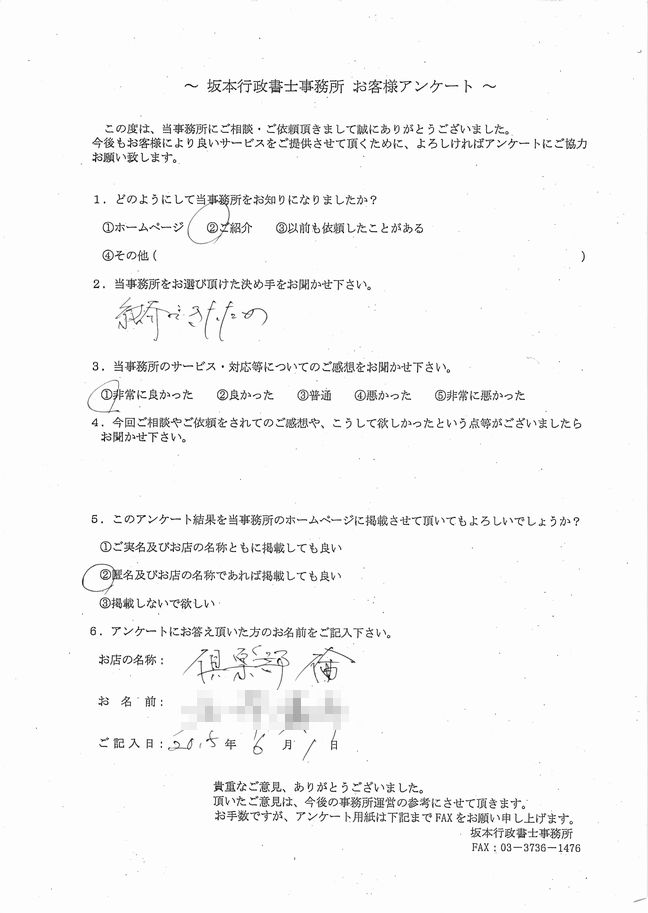 ～ 坂本行政書士事務所 お客様アンケート ～
この度は、当事務所にご相談・ご依頼頂きまして誠にありがとうございました。
今後もお客様により良いサービスをご提供させて頂くために、よろしければアンケートにご協力
お願い致します。
１．どのようにして当事務所をお知りになりましたか？
①ホームページ ②ご紹介 ③以前も依頼したことがある
④その他 ( )
２．当事務所をお選び頂けた決め手をお聞かせ下さい。
紹介できたため
３．当事務所のサービス・対応等についてのご感想をお聞かせ下さい。
①非常に良かった ②良かった ③普通 ④悪かった ⑤非常に悪かった
４．今回ご相談やご依頼をされてのご感想や、こうして欲しかったという点等がございましたら
お聞かせ下さい。
５．このアンケート結果を当事務所のホームページに掲載させて頂いてもよろしいでしょうか？
①ご実名及びお店の名称ともに掲載しても良い
②匿名及びお店の名称であれば掲載しても良い
③掲載しないで欲しい
６．アンケートにお答え頂いた方のお名前をご記入下さい。
お店の名称： 倶楽部
お 名 前：
ご記入日：2015年 6月 1日
貴重なご意見、ありがとうございました。
頂いたご意見は、今後の事務所運営の参考にさせて頂きます。
お手数ですが、アンケート用紙は下記まで FAX をお願い申し上げます。
坂本行政書士事務所
FAX：03－3736－1476